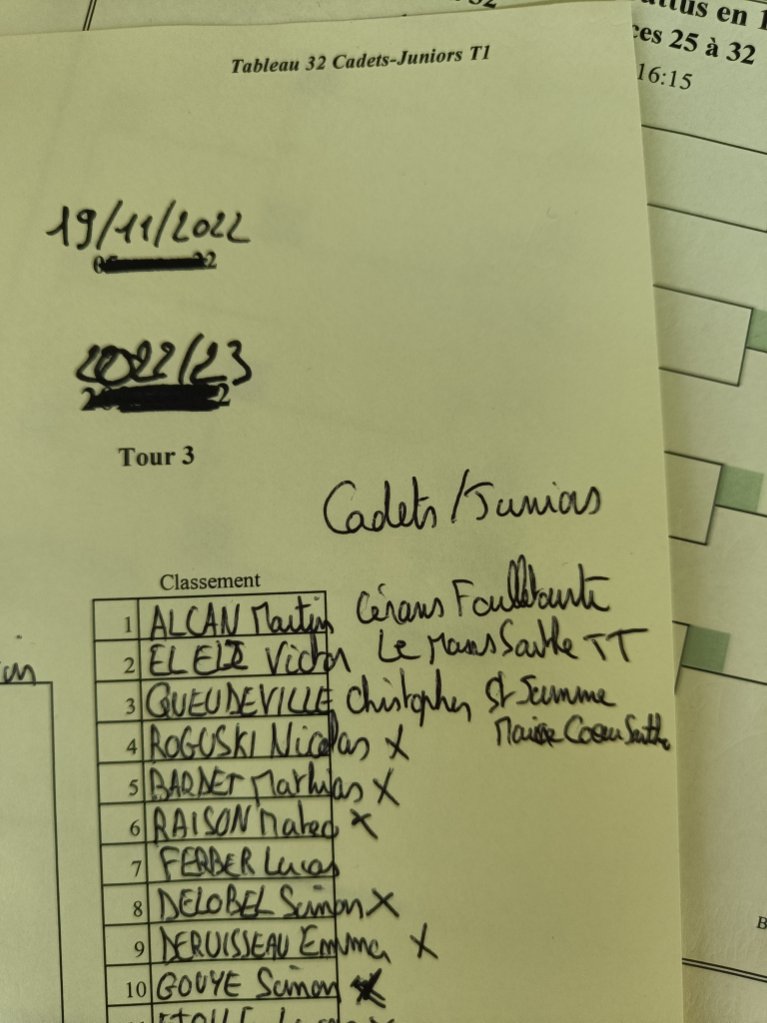 Tableau 32 Cadets-Juniors T1
en 1
ces 25 à 32
16:15
19/11/2022
2022/23
Tour 3
Cadets/Juniors
Classement
1 ALCAN Martin Cérans Foulletourte
2 ELELE Victor Le Mans Sarthe TT
3 QUEUDEVILLE Christopher St Jamme
Maine Coeur Sarthe
4 ROGUSKI Nicolas X
5 BARDET Mathias X
6 RAISON Mateo X
7 FERBER Lucas
8 DELOBEL Simon X
9 DERUISSEAU Emma X
10 GOUYE Simon X